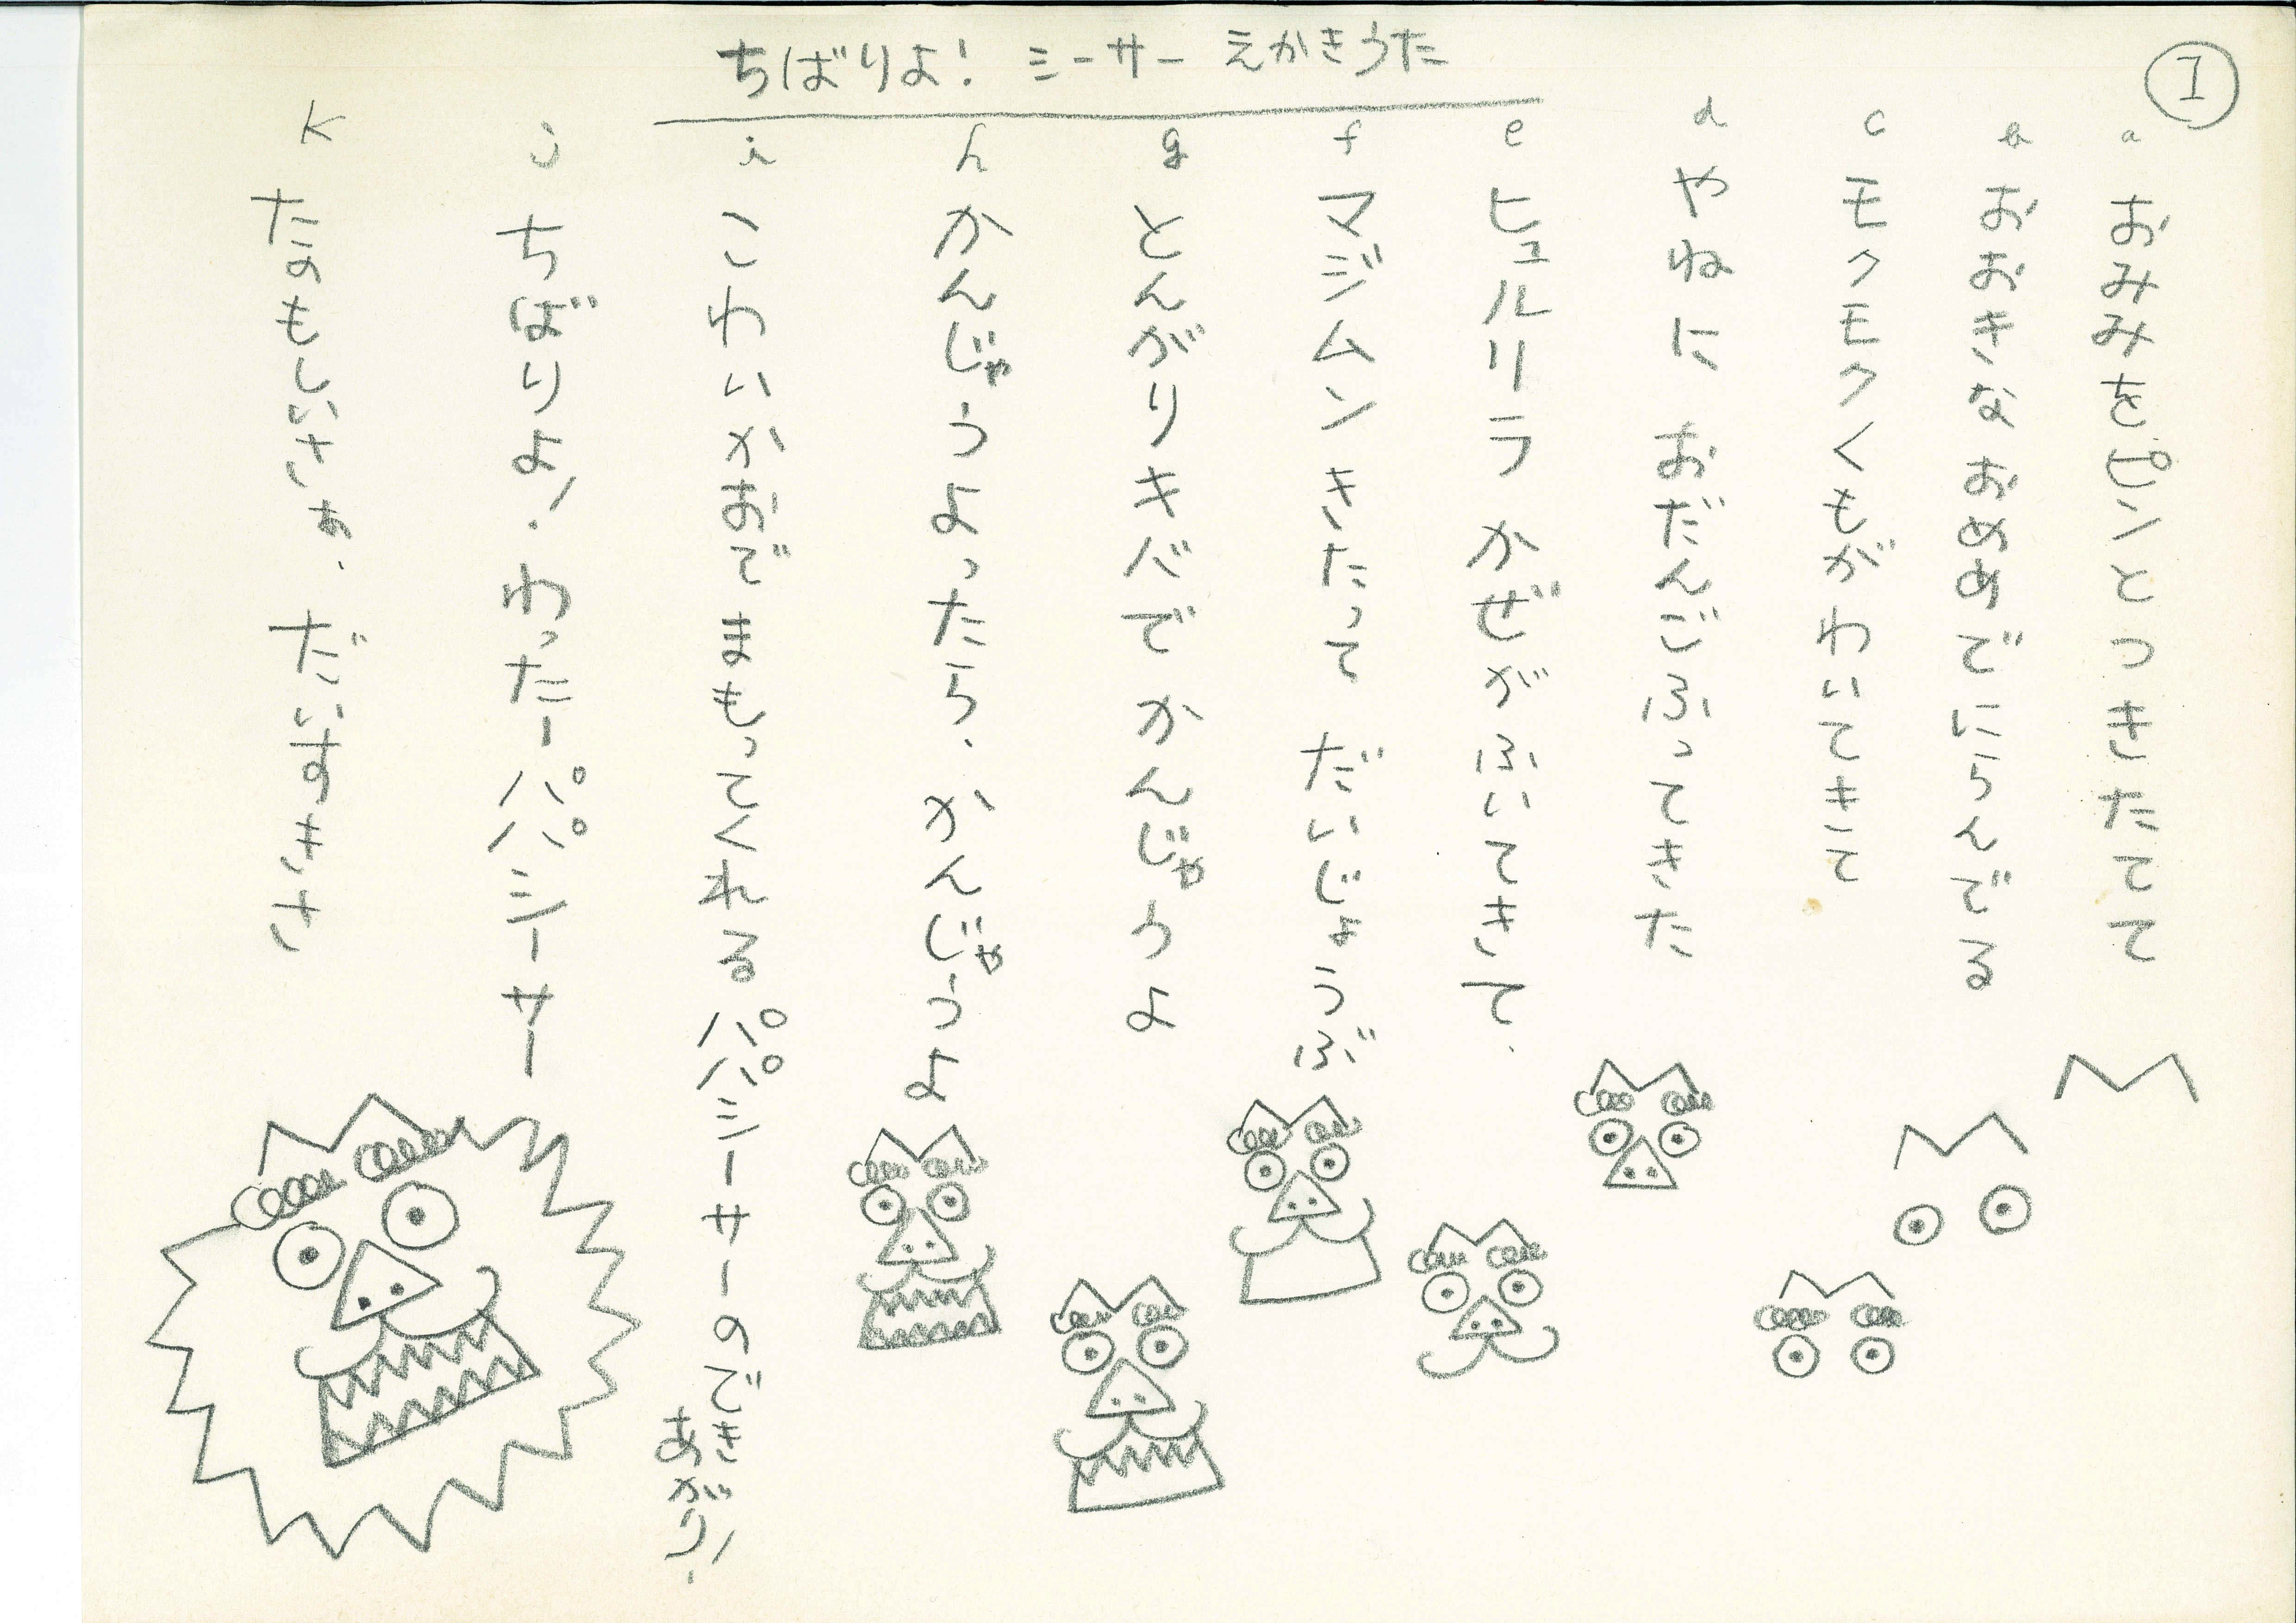 ちばりよ! ミーサー えかきうた
1
a おみみをピンとつきたてて
b おおきな おめめで にらんでる
c モクモクくもがわいてきて
d やねに おだんごふってきた
e ヒュルリラ かぜが ふいてきて、
f マジムン きたって だいじょうぶ
g とんがりキバで かんじゃうよ
h かんじゃうよったら、かんじゃうよ
i こわいかおで まもってくれる パパシーサーのできあがり!
j ちばりよ! わったーパパシーサー
k たのもしいさぁ、だいすきさ